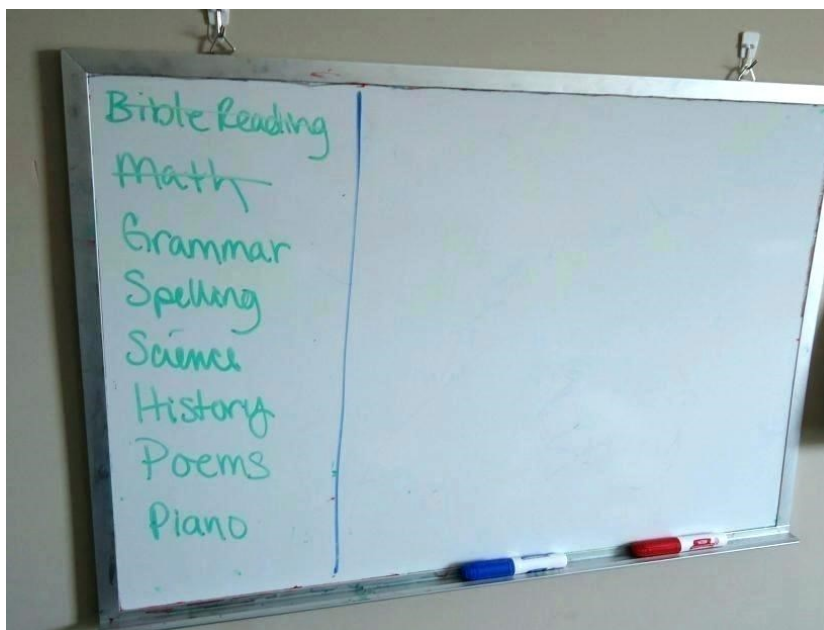 Bible Reading
Math
Grammar
Spelling
Science
History
Poems
Piano